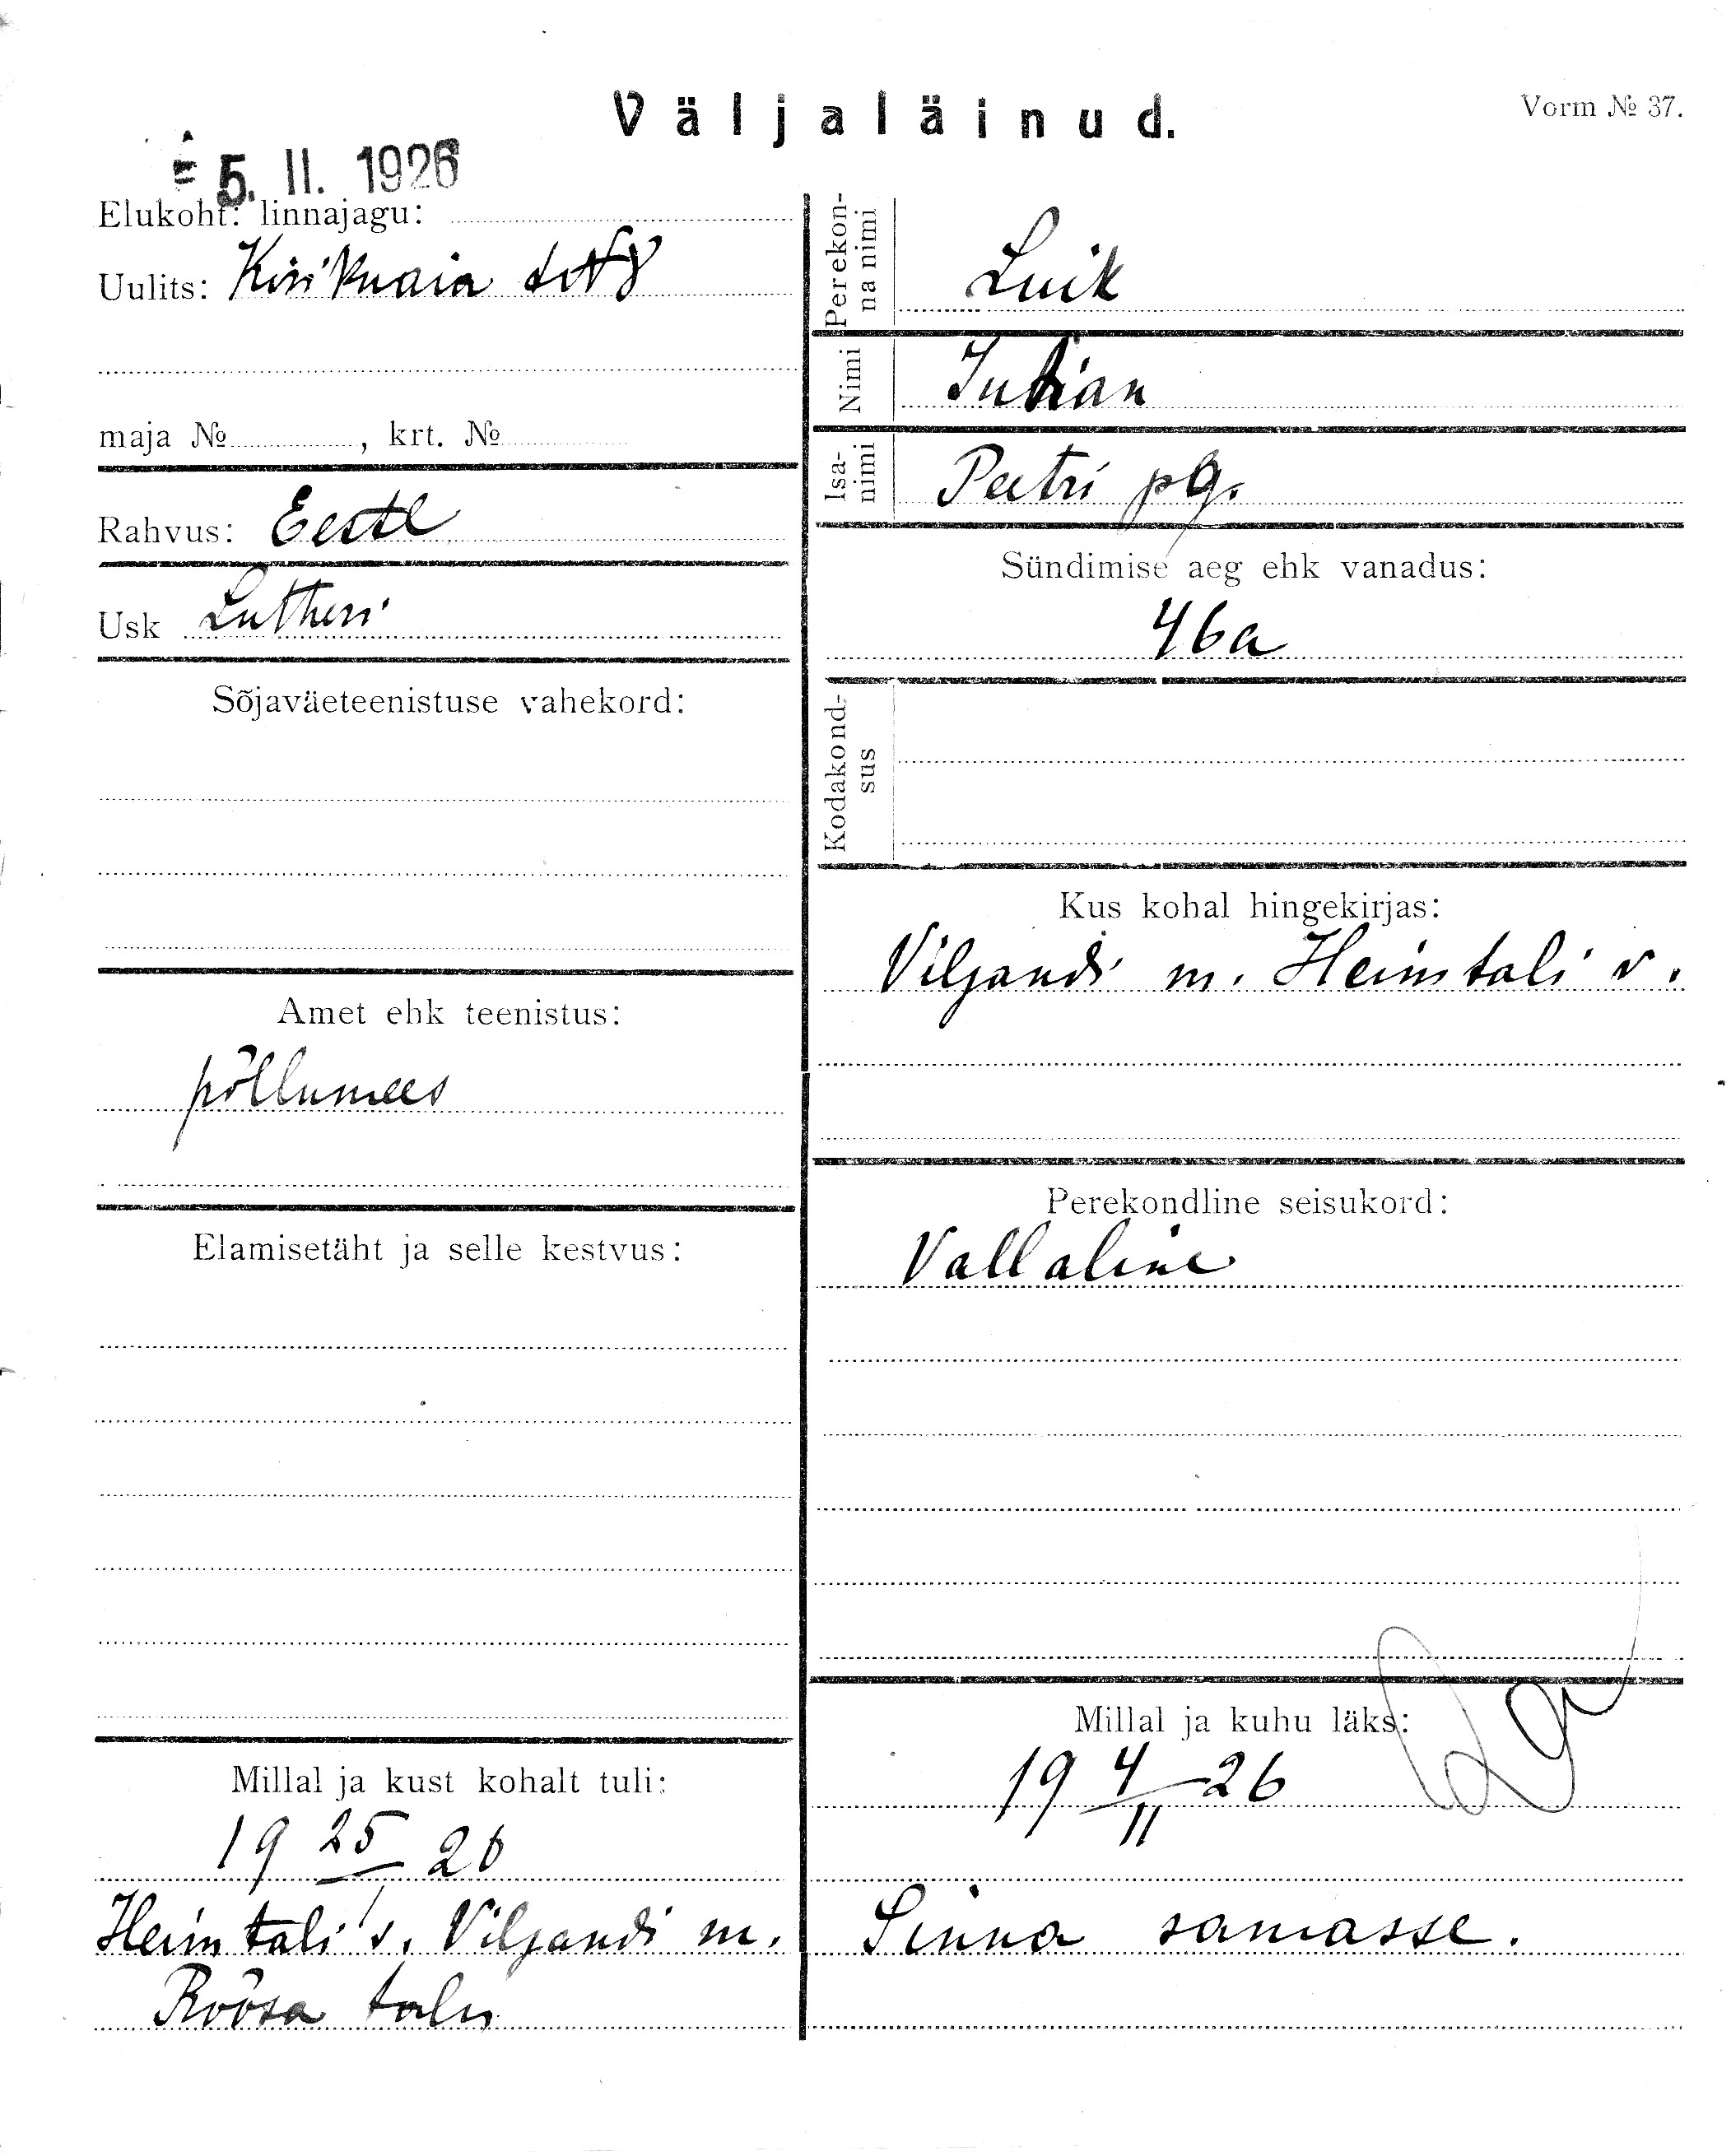 Väljaläinud.
Vorm № 37.
5. II. 1926
Elukoht: linnajagu:
Uulits: Kirikuaia t №8
maja № , krt. №
Rahvus: Eestl
Usk Lutheri
Sõjaväeteenistuse vahekord:
Amet ehk teenistus:
põllumees
Elamisetäht ja selle kestvus:
Millal ja kust kohalt tuli:
19 25/I 26
Heimtali v. Viljandi m.
Röösa talu
Perekon-
na nimi
Luik
Nimi
Juhan
Isa-
nimi
Peetri pg.
Sündimise aeg ehk vanadus:
46a
Kodakond-
sus
Kus kohal hingekirjas:
Viljandi m. Heimtali v.
Perekondline seisukord:
Vallaline
Millal ja kuhu läks:
19 4/II 26
Sinna samasse.